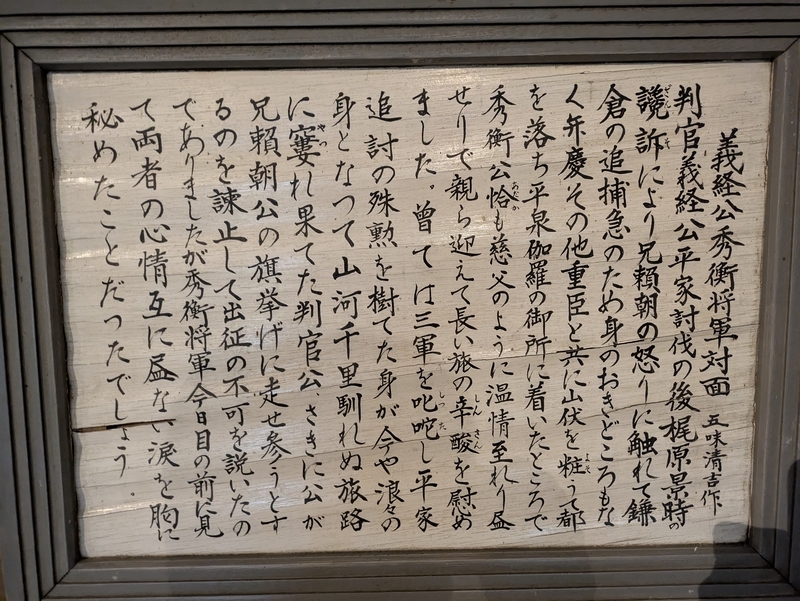 義経公秀衡将軍対面 五味清吉作
判官義経公平家討伐の後梶原景時の
讒訴により兄頼朝の怒りに触れて鎌
倉の追捕急のため身のおきどころもな
く弁慶その他重臣と共に山伏を粧うて都
を落ち平泉伽羅の御所に着いたところで
秀衡公恰も慈父のように温情至れり昼
せりで親ら迎えて長い旅の辛酸を慰め
ました。曾ては三軍を叱咤し平家
追討の殊勲を樹てた身が今や浪々の
身となつて山河千里馴れぬ旅路
に窶れ果てた判官公、さきに公が
兄頼朝公の旗挙げに走せ参うとす
るのを諫止して出征の不可を説いたの
でありましたが秀衡将軍今日目の前に見
て両者の心情互に昼ない涙を胸に
秘めたことだったでしょう。